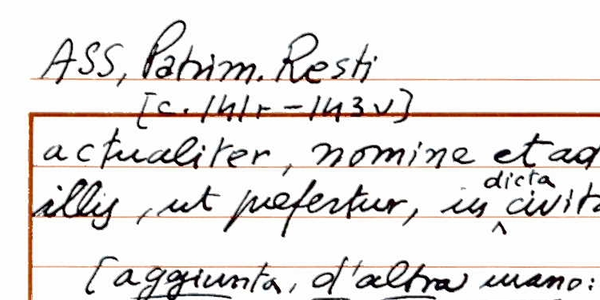 ASS, Patrim. Resti
[c. 141r – 143v]
actualiter, nomine et ad
illis, ut prefertur, in dicta civita
[aggiunta, d'altra mano: